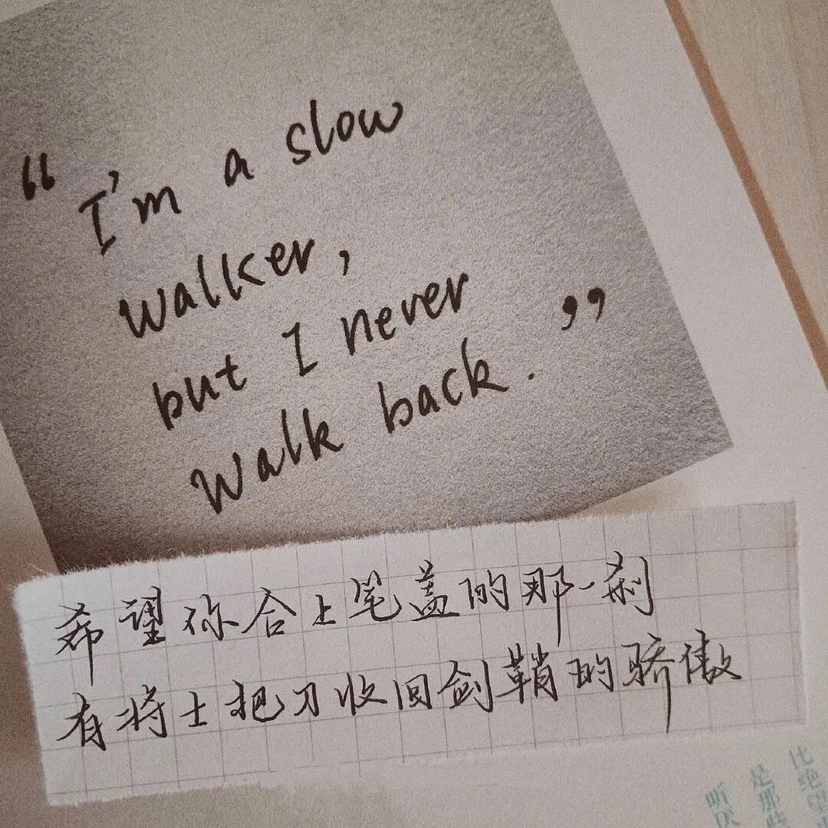 “I'm a slow
walker,
but I never
walk back.”
希望你合上笔盖的那一刹
有将士把刀收回剑鞘的骄傲
比绝望
是那些
听厌